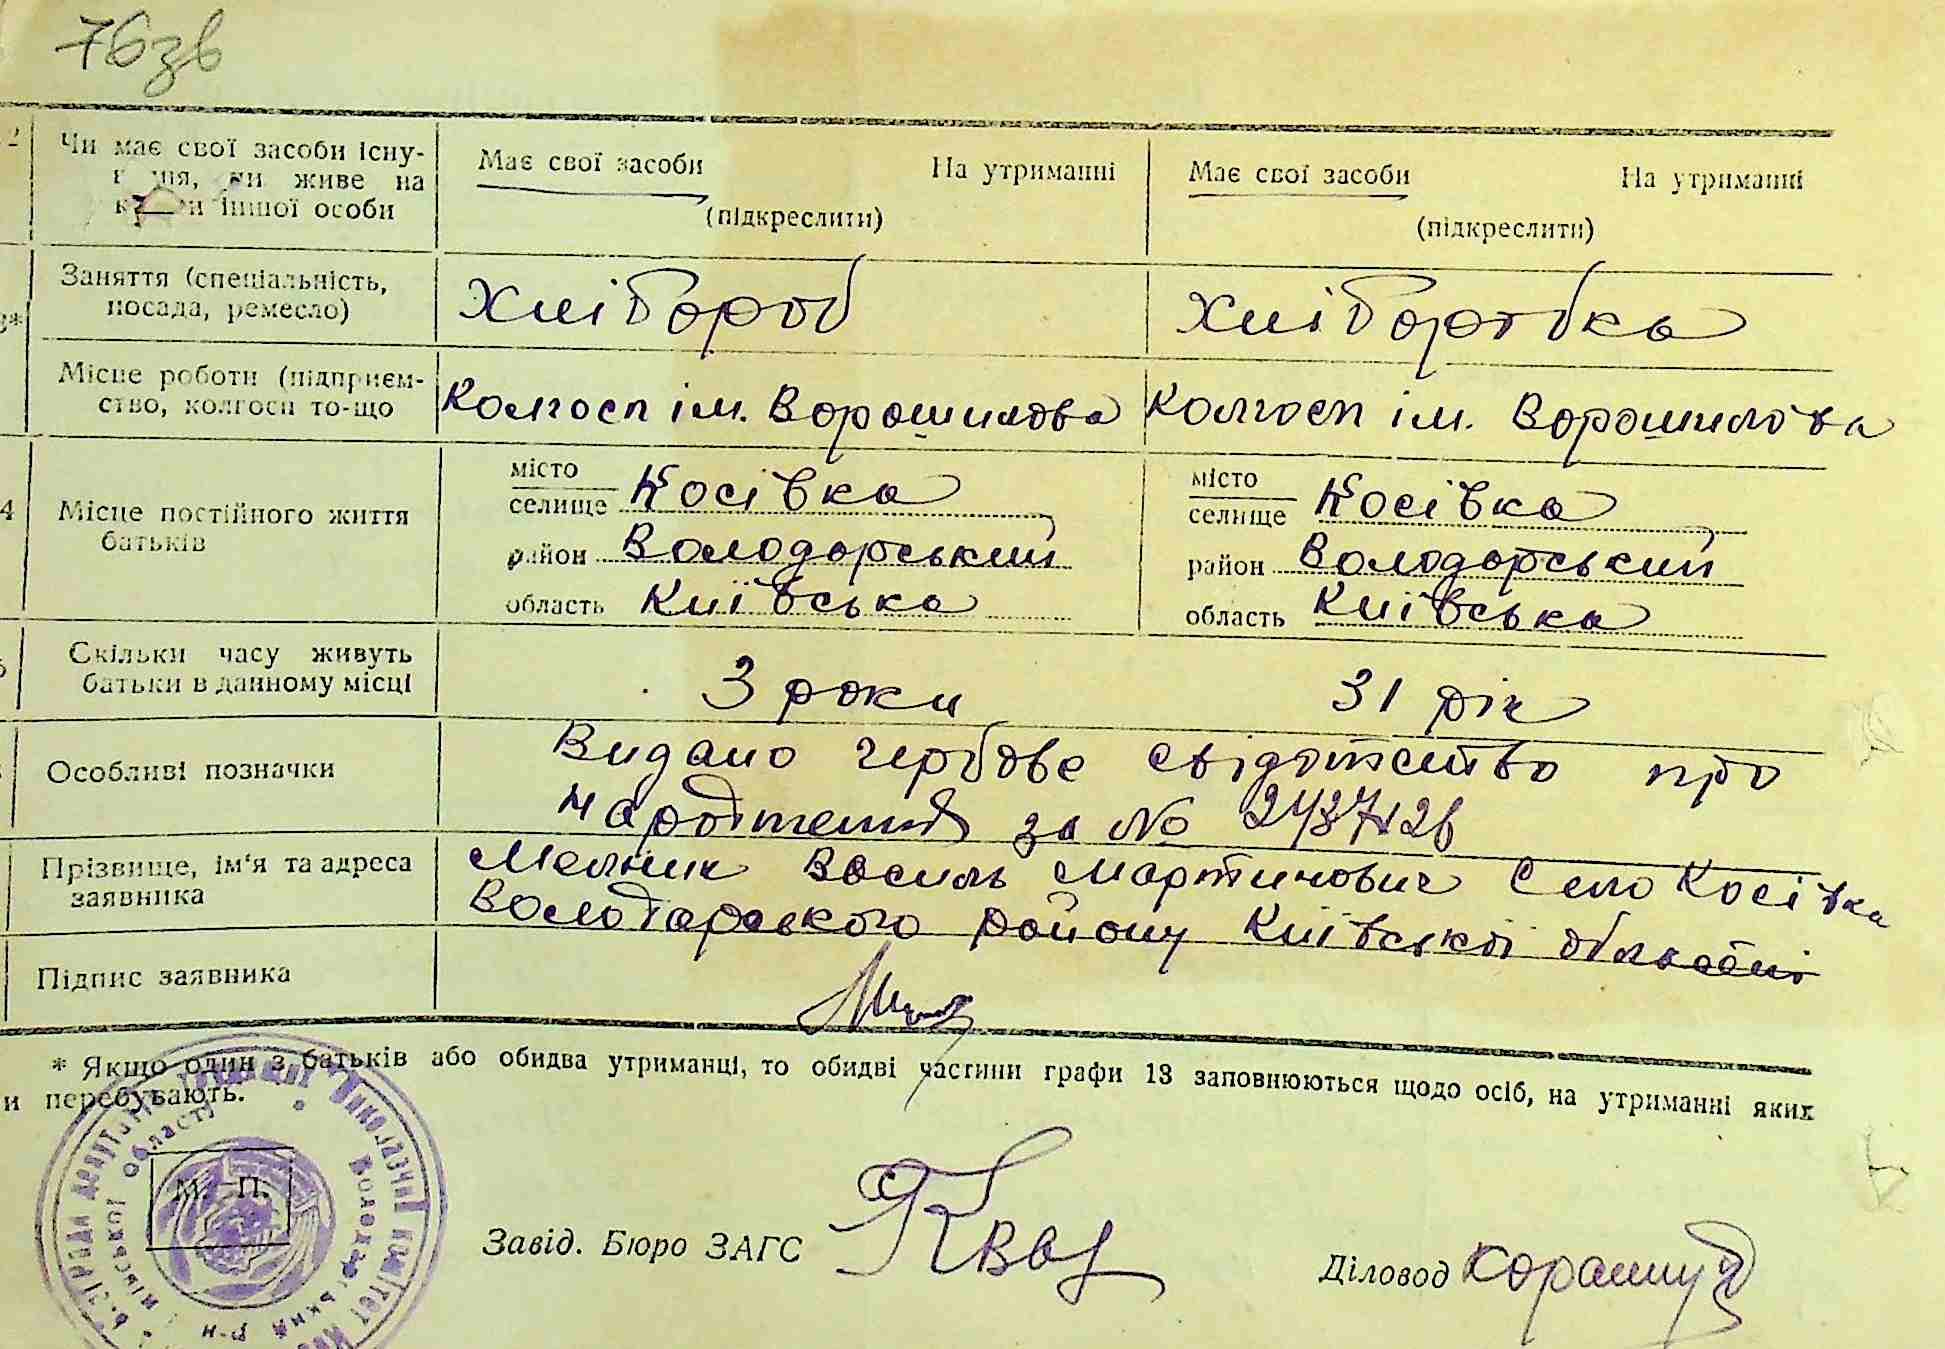 76зв
2 Чи має свої засоби існу- Має свої засоби На утриманні Має свої засоби На утриманні
чи живе на
іншої особи (підкреслити) (підкреслити)
Заняття (спеціальність,
посада, ремесло) Хлібороб Хліборобка
3*
Місце роботи (підприєм-
ство, колгосп то-що Колгосп ім. Ворошилова Колгосп ім. Ворошилова
місто місто
селище Косівка селище Косівка
4 Місце постійного життя
батьків район Володарський район Володарський
область Київська область Київська
Скільки часу живуть
батьки в данному місці 3 роки 31 рік
Особливі позначки Видано гербове свідотство про
народження за №
Прізвище, ім'я та адреса Мельник Василь Мартинович Село Косівка
заявника Володарського району Київської області
Підпис заявника
* Якщо один з батьків або обидва утриманці, то обидві частини графи 13 заповнюються щодо осіб, на утриманні яких
и перебувають.
М. П.
Завід. Бюро ЗАГС
Діловод